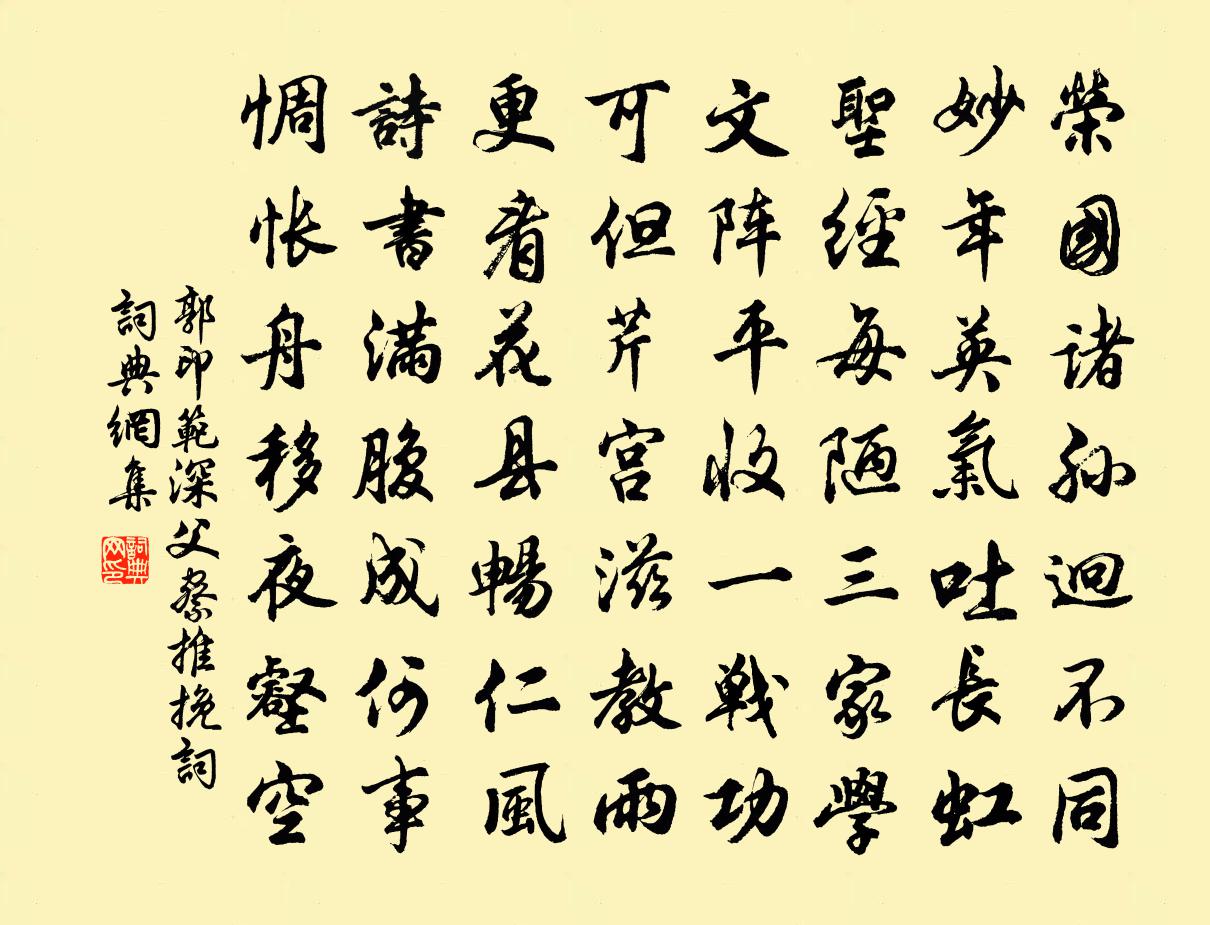 榮國諸孙迥不同
妙年英氣吐長虹
聖經每陋三家學
文阵平收一戦功
可但芹宫滋教雨
更看花县暢仁風
詩書满腹成何事
惆怅舟移夜壑空
郭印範深父察推挽詞
詞典網集
詞典网印